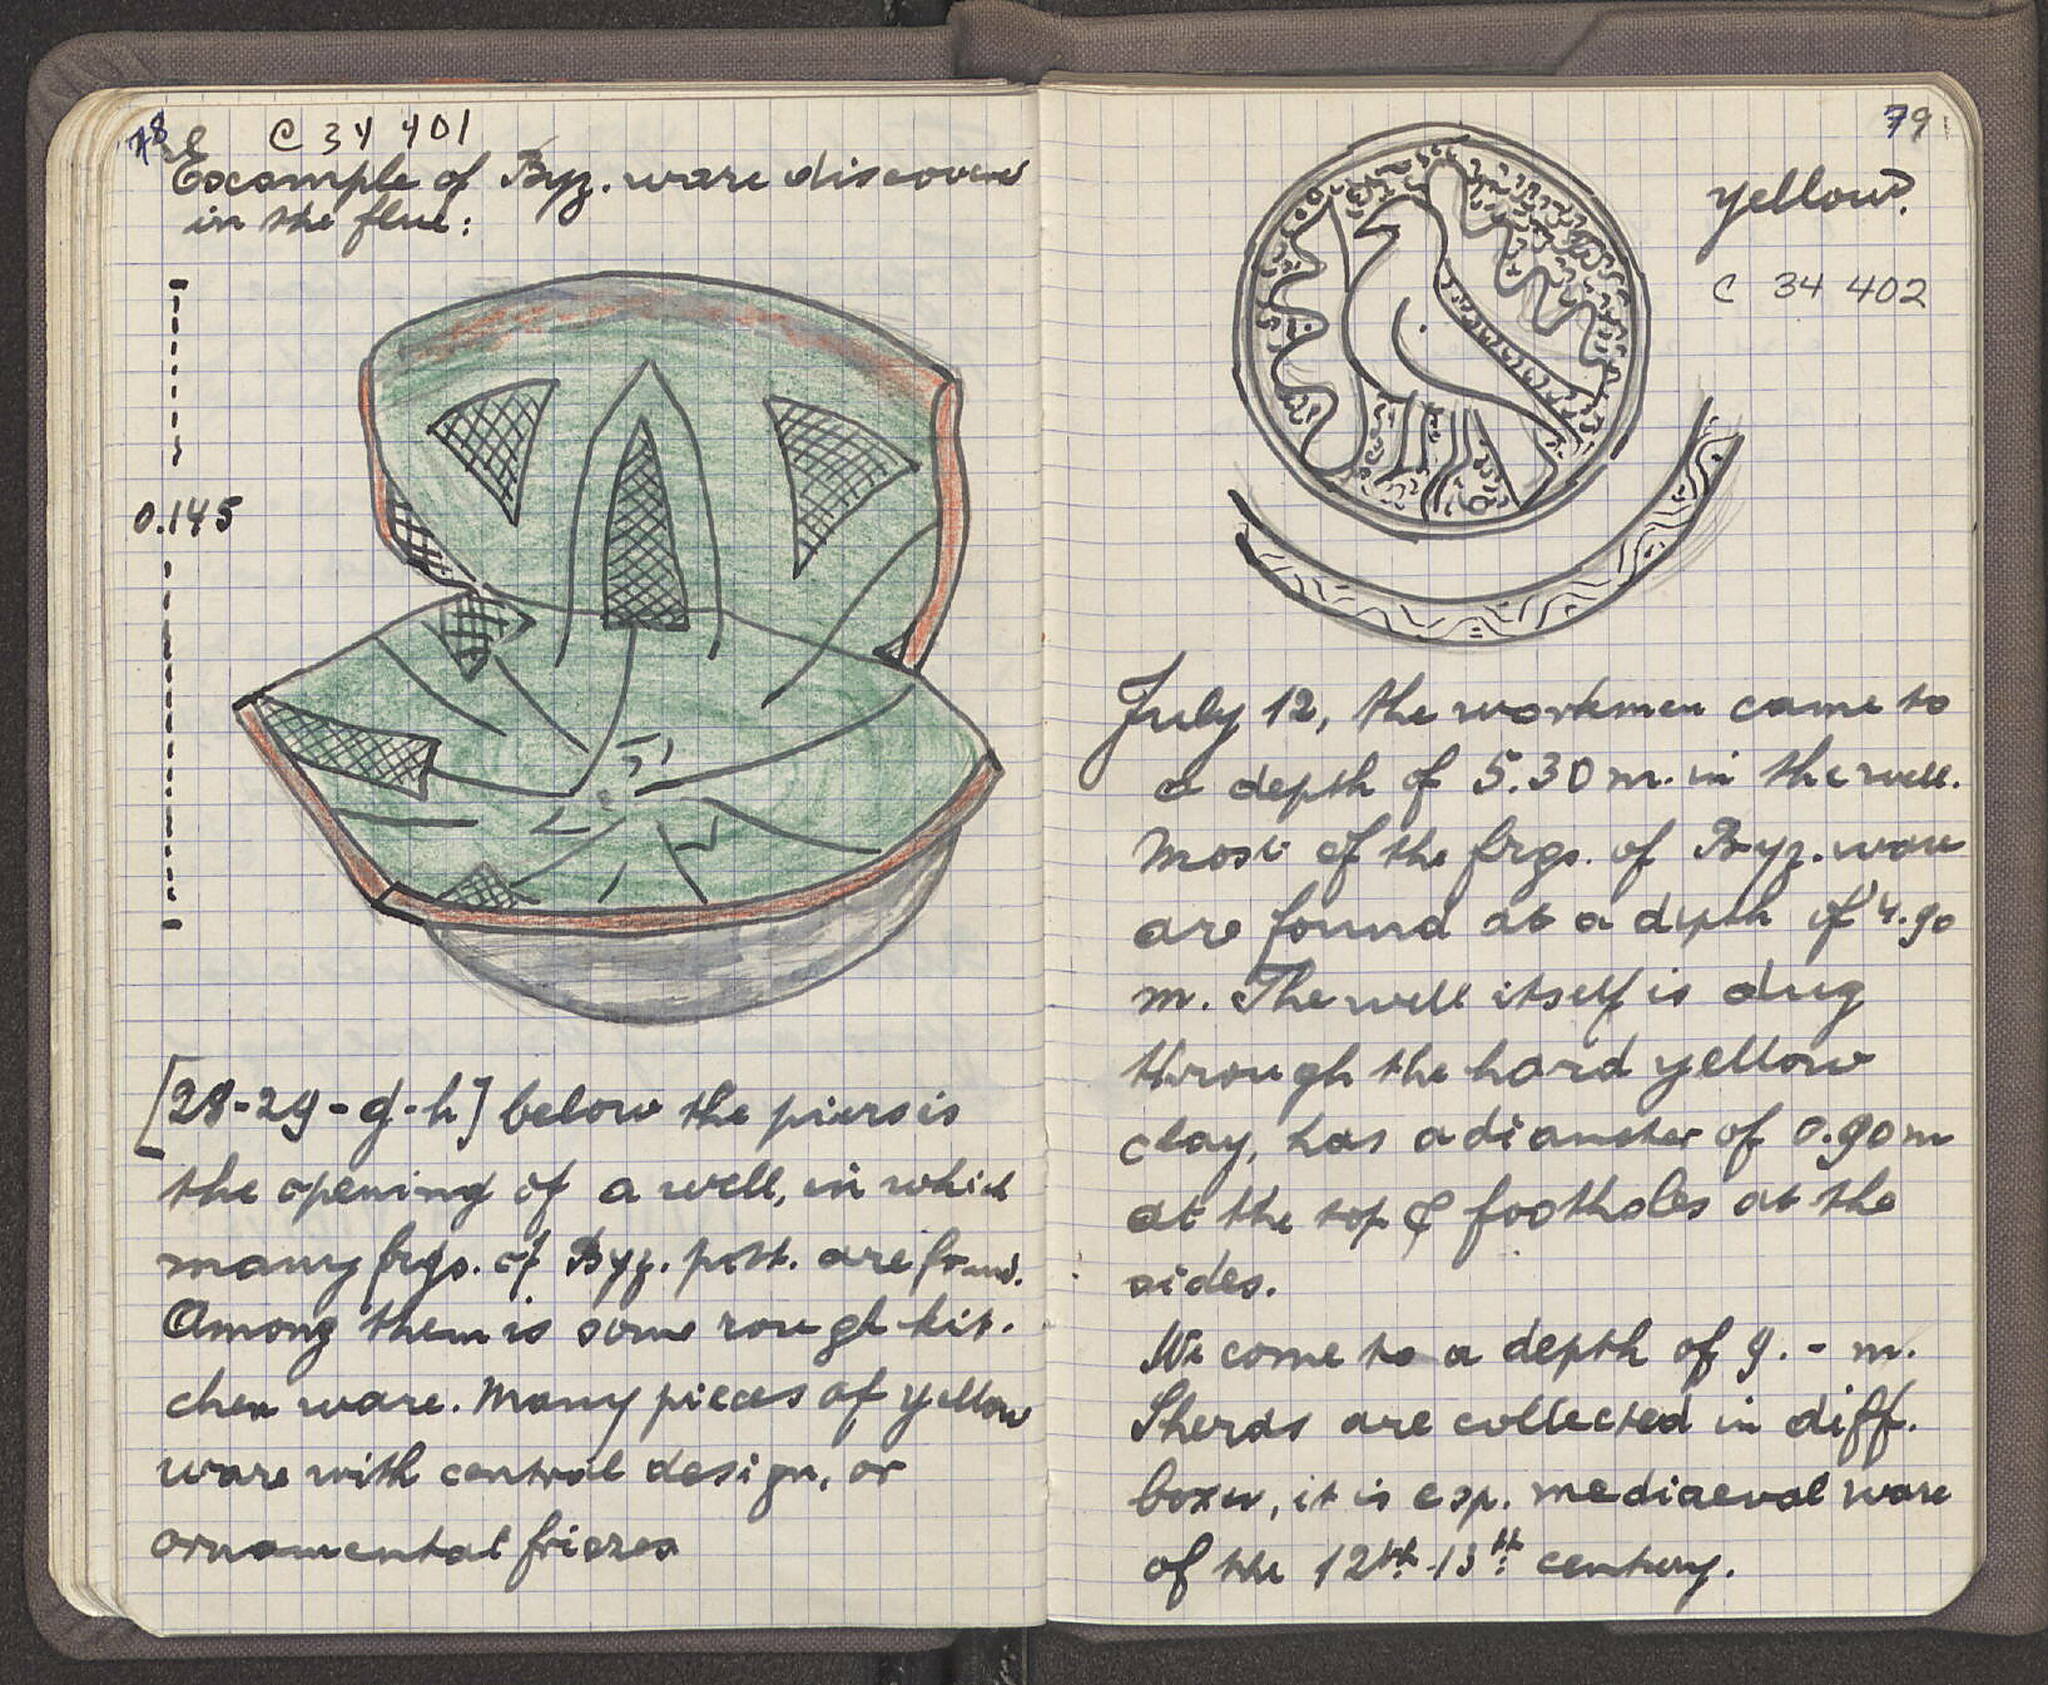 78
C 34 401
Example of Byz. ware discovered
in the flue:
0.145
[28-29-g-h] below the piers is
the opening of a well, in which
many frgs. of Byz. pott. are found.
Among them is some rough kit-
chen ware. Many pieces of yellow
ware with central design, or
ornamental friezes
79
yellow.
C 34 402
July 12, the workmen came to
a depth of 5.30 m. in the well.
Most of the frgs. of Byz. ware
are found at a depth of 4.90
m. The well itself is dug
through the hard yellow
clay, has a diameter of 0.90 m
at the top & footholes at the
sides.
We come to a depth of 9. - m.
Sherds are collected in diff.
boxes, it is esp. mediaeval ware
of the 12th-13th century.